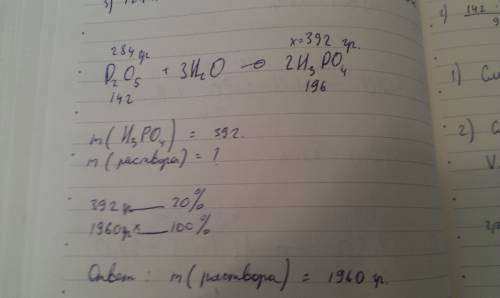 3)
284 гр. x=392 гр.
P₂O₅ + 3H₂O → 2H₃PO₄
142 196
m(H₃PO₄) = 392.
m(раствора) = ?
392 гр — 20%
1960гр x — 100%
Ответ: m(раствора) = 1960 гр.
142
1)
2) С
V